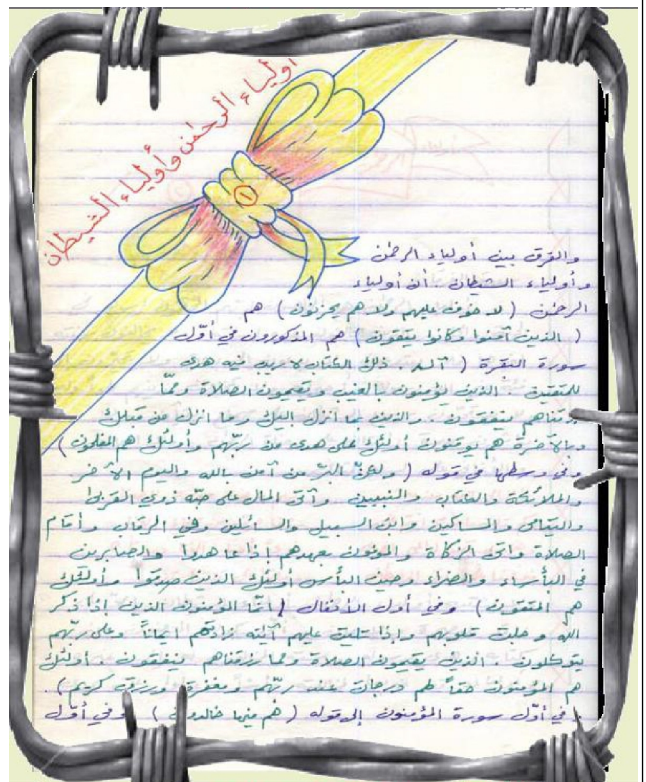 أولياء الرحمن وأولياء الشيطان
١
والفرق بين أولياء الرحمن
وأولياء الشيطان أن أولياء
الرحمن ( لا خوف عليهم ولا هم يحزنون ) هم
( الذين آمنوا وكانوا يتقون ) هم المذكورون في أوّل
سورة البقرة ( آلم . ذلك الكتاب لا ريب فيه هدى
للمتقين . الذين يؤمنون بالغيب ويقيمون الصلاة وممّا
رزقناهم ينفقون . والذين بما أنزل اليك وما انزل من قبلك
وبالآخرة هم يوقنون أولئك على هدى من ربّهم وأولئك هم المفلحون )
وفي وسطها في قوله ( ولكنّ البرّ من آمن بالله واليوم الآخر
والملائكة والكتاب والنبيين وآتى المال على حبّه ذوي القربى
واليتامى والمساكين وابن السبيل والسائلين وفي الرقاب وأقام
الصلاة وآتى الزكاة والموفون بعهدهم إذا عاهدوا والصابرين
في البأساء والضراء وحين البأس أولئك الذين صدقوا وأولئك
هم المتقون ) وفي أول الأنفال ( انّما المؤمنون الذين إذا ذكر
الله وجلت قلوبهم وإذا تليت عليهم آياته زادتهم ايماناً وعلى ربّهم
يتوكلون . الذين يقيمون الصلاة ومما رزقناهم ينفقون . أولئك
هم المؤمنون حقاً لهم درجات عند ربّهم ومغفرة ورزق كريم ) .
وفي أوّل سورة المؤمنون إلى قوله ( هم فيها خالدون ) وفي أوّل